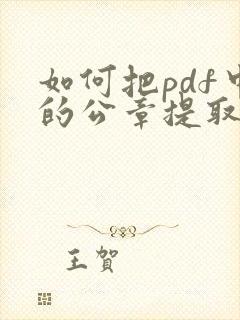 如何把pdf中
的公章提取
王賀